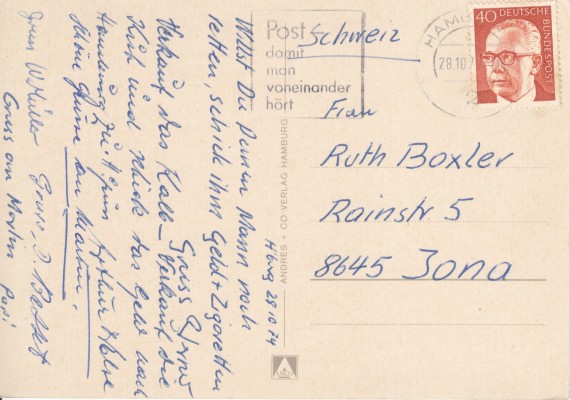 H'burg 28.10.74
Willst Du Deinen Mann noch
retten, schick ihm Geld + Zigaretten
Gruss
Verkauf das Kalb - Verkauf die
Kuh und schick das Geld nach
Hamburg zu.
Schöne Grüsse an Martin.
Gruss
Gruss an Martin Papi
Post
damit
man
voneinander
hört
HAMBURG
28.10.7
40 DEUTSCHE
BUNDESPOST
ANDRES + CO VERLAG HAMBURG
Schweiz
Frau
Ruth Boxler
Rainstr 5
8645 Jona